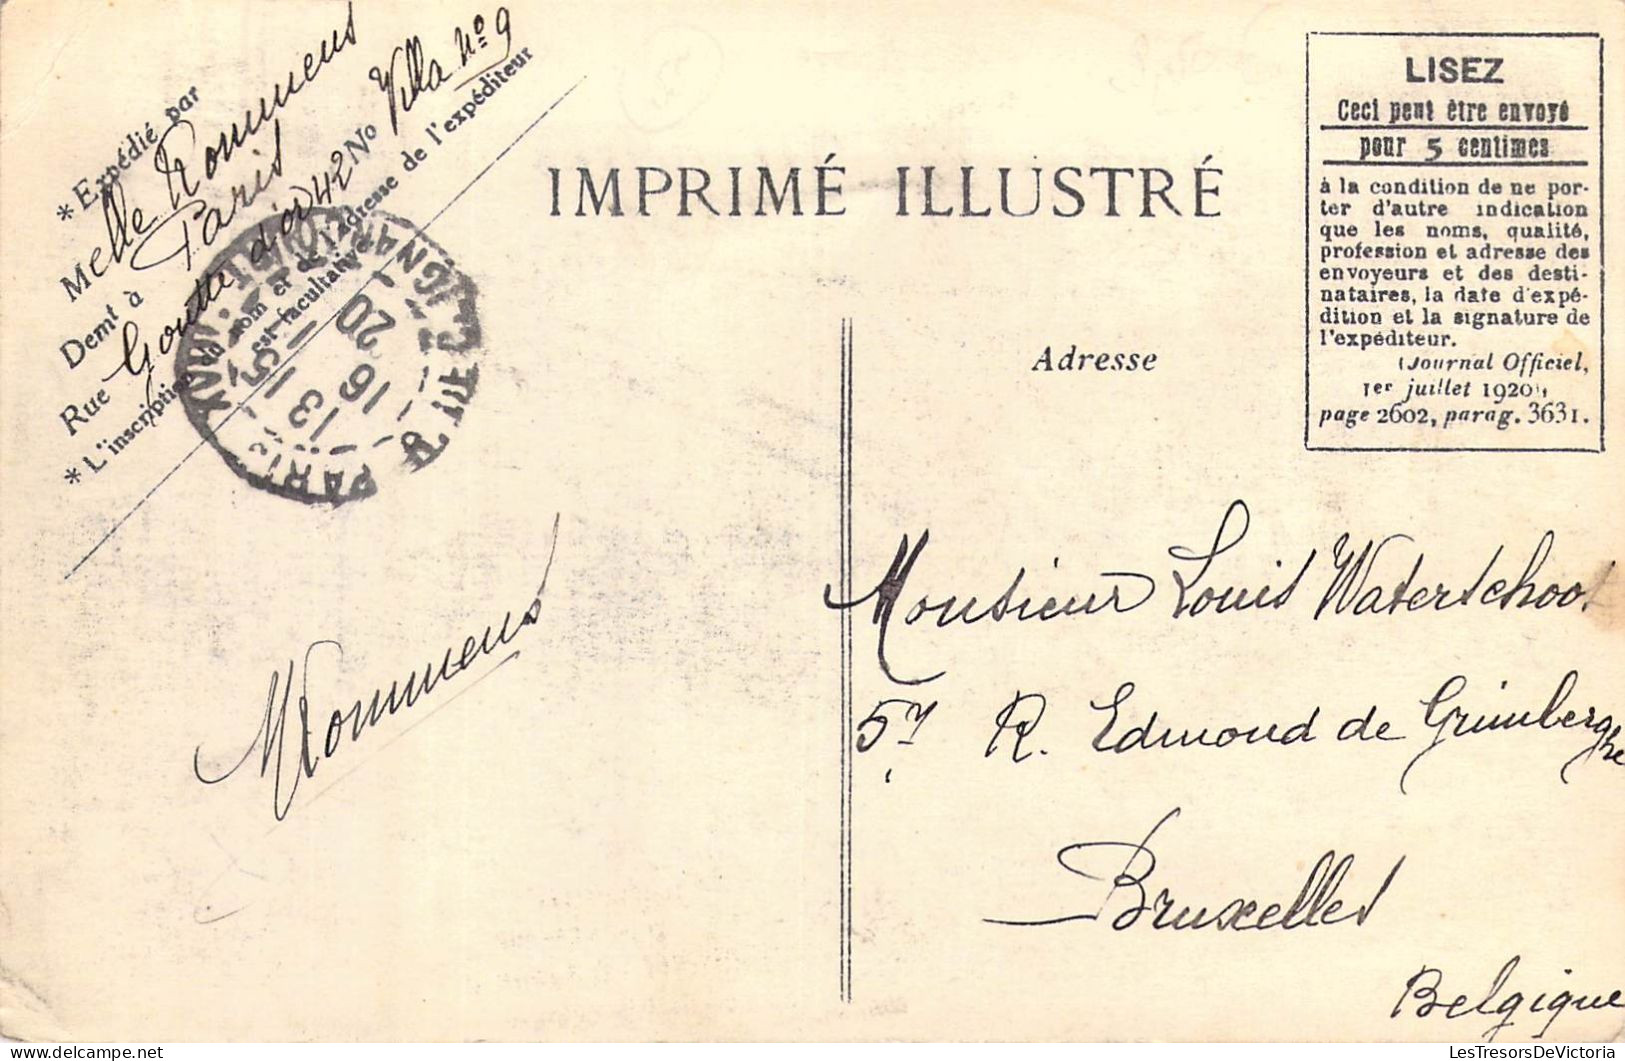 * Expédié par
Melle Rommens
Demt à Paris
Rue Goutte d'or 42 No Villa No 9
* L'inscription du nom et de l'adresse de l'expéditeur
est facultative
IMPRIMÉ ILLUSTRÉ
LISEZ
Ceci peut être envoyé
pour 5 centimes
à la condition de ne por-
ter d'autre indication
que les noms, qualité,
profession et adresse des
envoyeurs et des desti-
nataires, la date d'expé-
dition et la signature de
l'expéditeur.
(Journal Officiel,
1er juillet 1920),
page 2602, parag. 3631.
Adresse
PARIS
15
16 3
20
Rommens
Monsieur Louis Waterschoot
57 R. Edmond de Grimberghe
Bruxelles
Belgique
LesTresorsDeVictoria